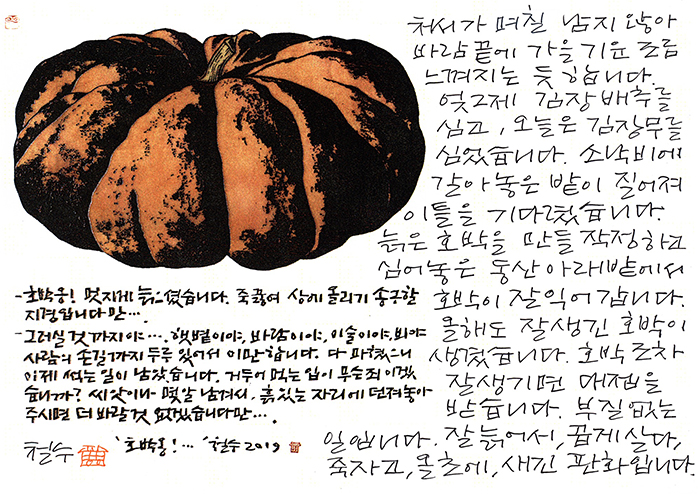 처서가 며칠 남지 않아
바람끝에 가을 기운 조금
느껴지는 듯 합니다.
엊그제 김장배추를
심고, 오늘은 김장무를
심었습니다. 소낙비에
갈아놓은 밭이 질어져
이틀을 기다렸습니다.
늙은 호박을 만들 작정하고
심어놓은 동산 아래밭에서
호박이 잘 익어 갑니다.
올해도 잘생긴 호박이
생겼습니다. 호박조차
잘생기면 대접을
받습니다. 부질없는
일입니다. 잘 늙어서, 곱게 살다,
죽자고, 올초에, 새긴 판화입니다.
- 호박옹! 멋지게 늙으셨습니다. 죽 끓여 상에 올리기 송구할
지경입니다만….
- 그러실 것까지야…. 햇볕이야, 바람이야, 이슬이야, 비야
사람의 손길까지 두루 있어서 이만합니다. 다 파했으니
이제 썩는 일이 남았습니다. 거두어 먹는 입이 무슨 죄이겠
습니까? 씨앗이나 몇알 남겨서, 흙있는 자리에 던져놓아
주시면 더 바랄것 없겠습니다만….
철수 '호박옹!…' 철수 2019